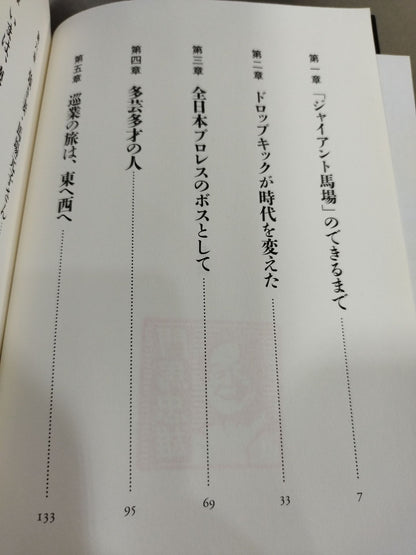 第一章 「ジャイアント馬場」のできるまで 7
第二章 ドロップキックが時代を変えた 33
第三章 全日本プロレスのボスとして 69
第四章 多芸多才の人 95
第五章 巡業の旅は、東へ西へ 133